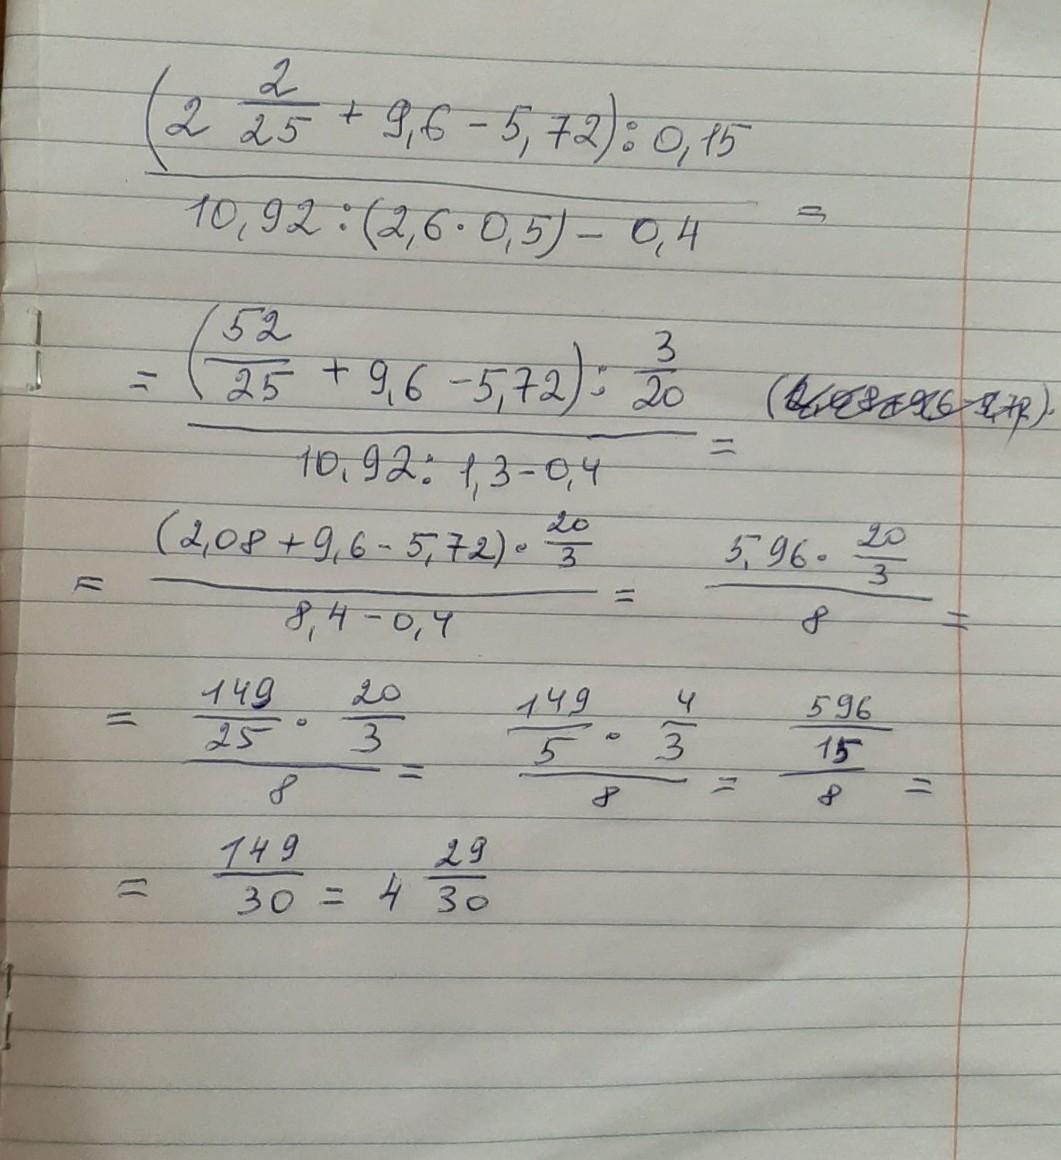 (2 2/25 + 9,6 - 5,72) : 0,15
10,92 : (2,6 · 0,5) - 0,4 =
= (52/25 + 9,6 - 5,72) : 3/20
10,92 : 1,3 - 0,4 =
= (2,08 + 9,6 - 5,72) · 20/3 / 8,4 - 0,4 = 5,96 · 20/3 / 8 =
= 149/25 · 20/3 / 8 = 149/5 · 4/3 / 8 = 596/15 / 8 =
= 149/30 = 4 29/30